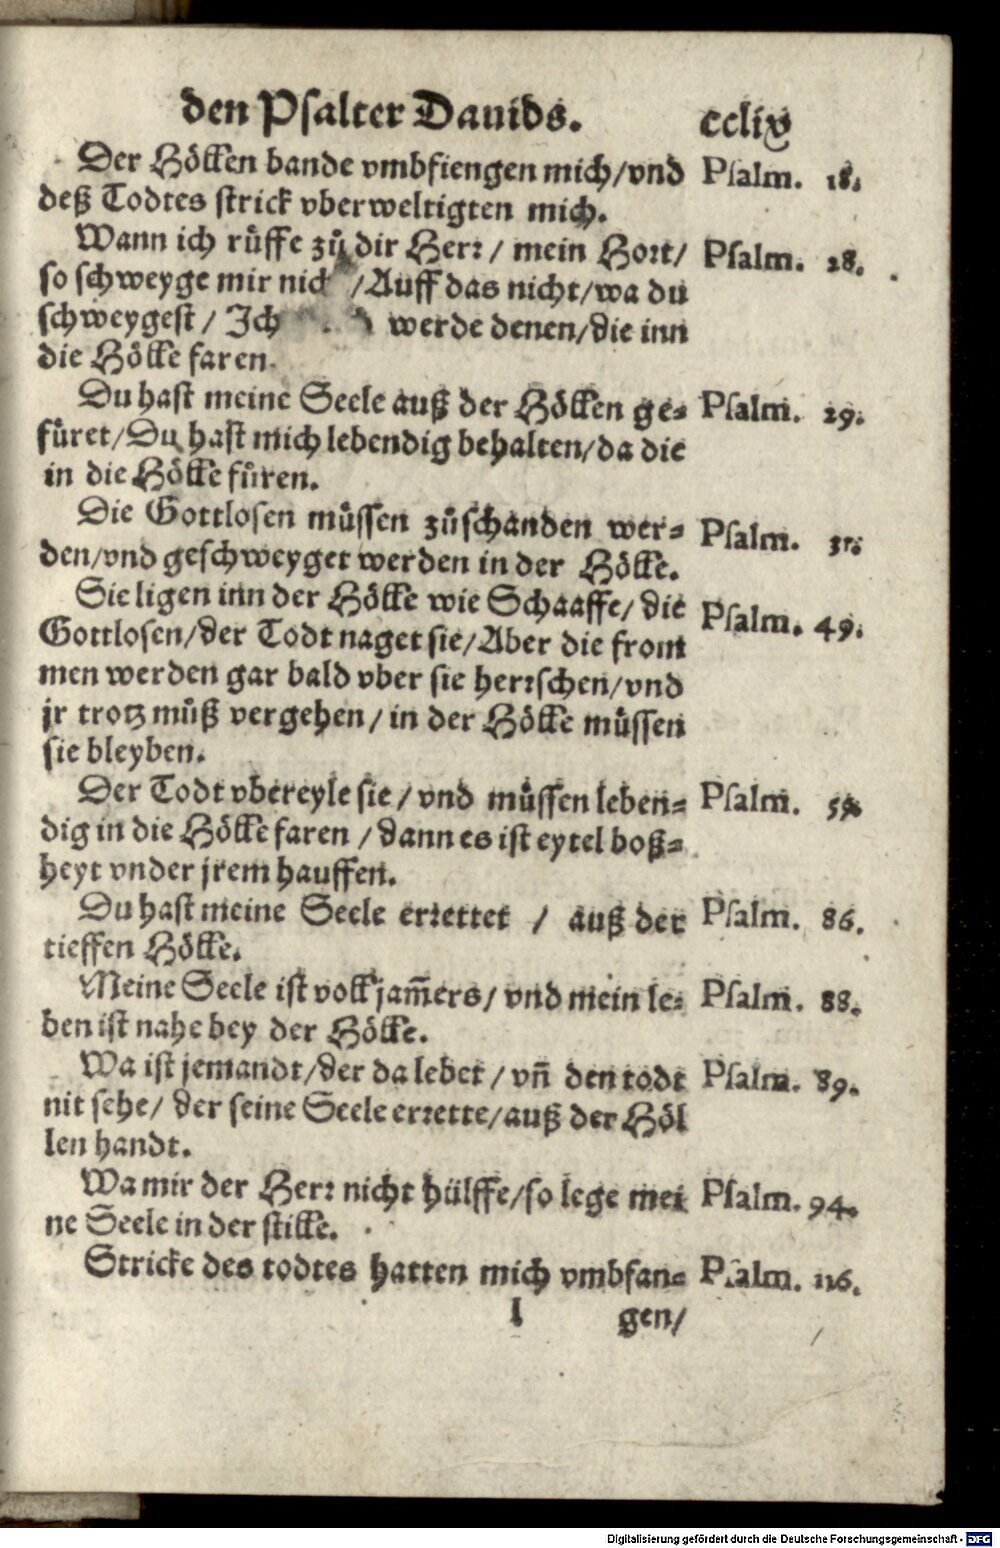 den Psalter Dauids. cclix
Der Höllen bande vmbfiengen mich/vnd Psalm. 18.
deß Todtes strick vberweltigten mich.
Wann ich růffe zů dir Herr/ mein Hort/ Psalm. 28.
so schweyge mir nich /Auff das nicht/wa du
schweygest/ Ich werde denen/die inn
die Hölle faren.
Du hast meine Seele auß der Höllen ge= Psalm. 29.
füret/Du hast mich lebendig behalten/da die
in die Hölle füren.
Die Gottlosen müssen zůschanden wer= Psalm.
den/vnd geschweyget werden in der Hölle.
Sie ligen inn der Hölle wie Schaaffe/ die Psalm. 49.
Gottlosen/der Todt naget sie/Aber die from
men werden gar bald vber sie herrschen/vnd
jr trotz můß vergehen/ in der Hölle müssen
sie bleyben.
Der Todt vbereyle sie/ vnd müssen leben= Psalm.
dig in die Hölle faren /dann es ist eytel boß=
heyt vnder jrem hauffen.
Du hast meine Seele errettet / auß der Psalm. 86.
tieffen Hölle.
Meine Seele ist voll jam̃ers/ vnd mein le= Psalm. 88.
ben ist nahe bey der Hölle.
Wa ist jemandt/der da lebet/ vñ den todt Psalm. 89.
nit sehe/ der seine Seele errette/auß der Höl
len handt.
Wa mir der Herr nicht hülffe/so lege mei Psalm. 94.
ne Seele in der stille.
Stricke des todtes hatten mich vmbfan= Psalm. 116.
l gen/
Digitalisierung gefördert durch die Deutsche Forschungsgemeinschaft - DFG